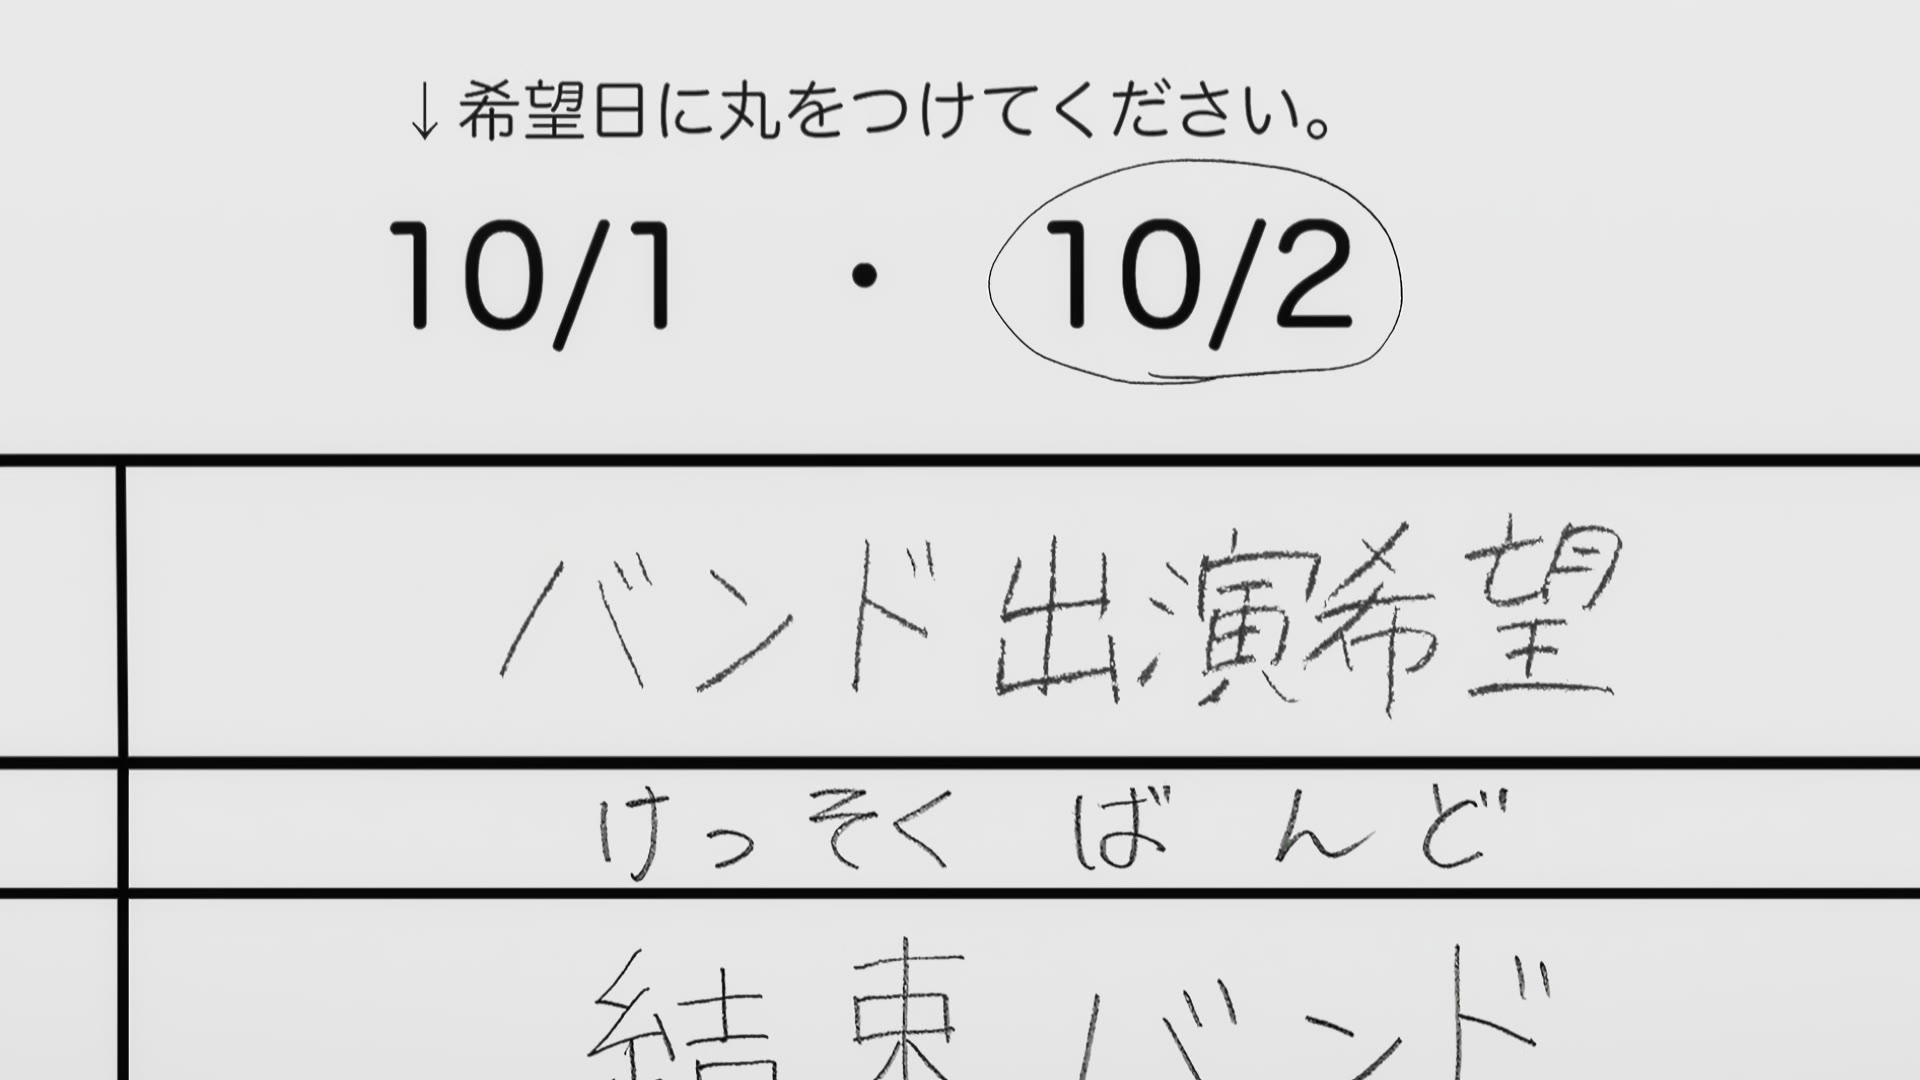 ↓希望日に丸をつけてください。
10/1 ・ 10/2
バンド出演希望
けっそくばんど
結束バンド